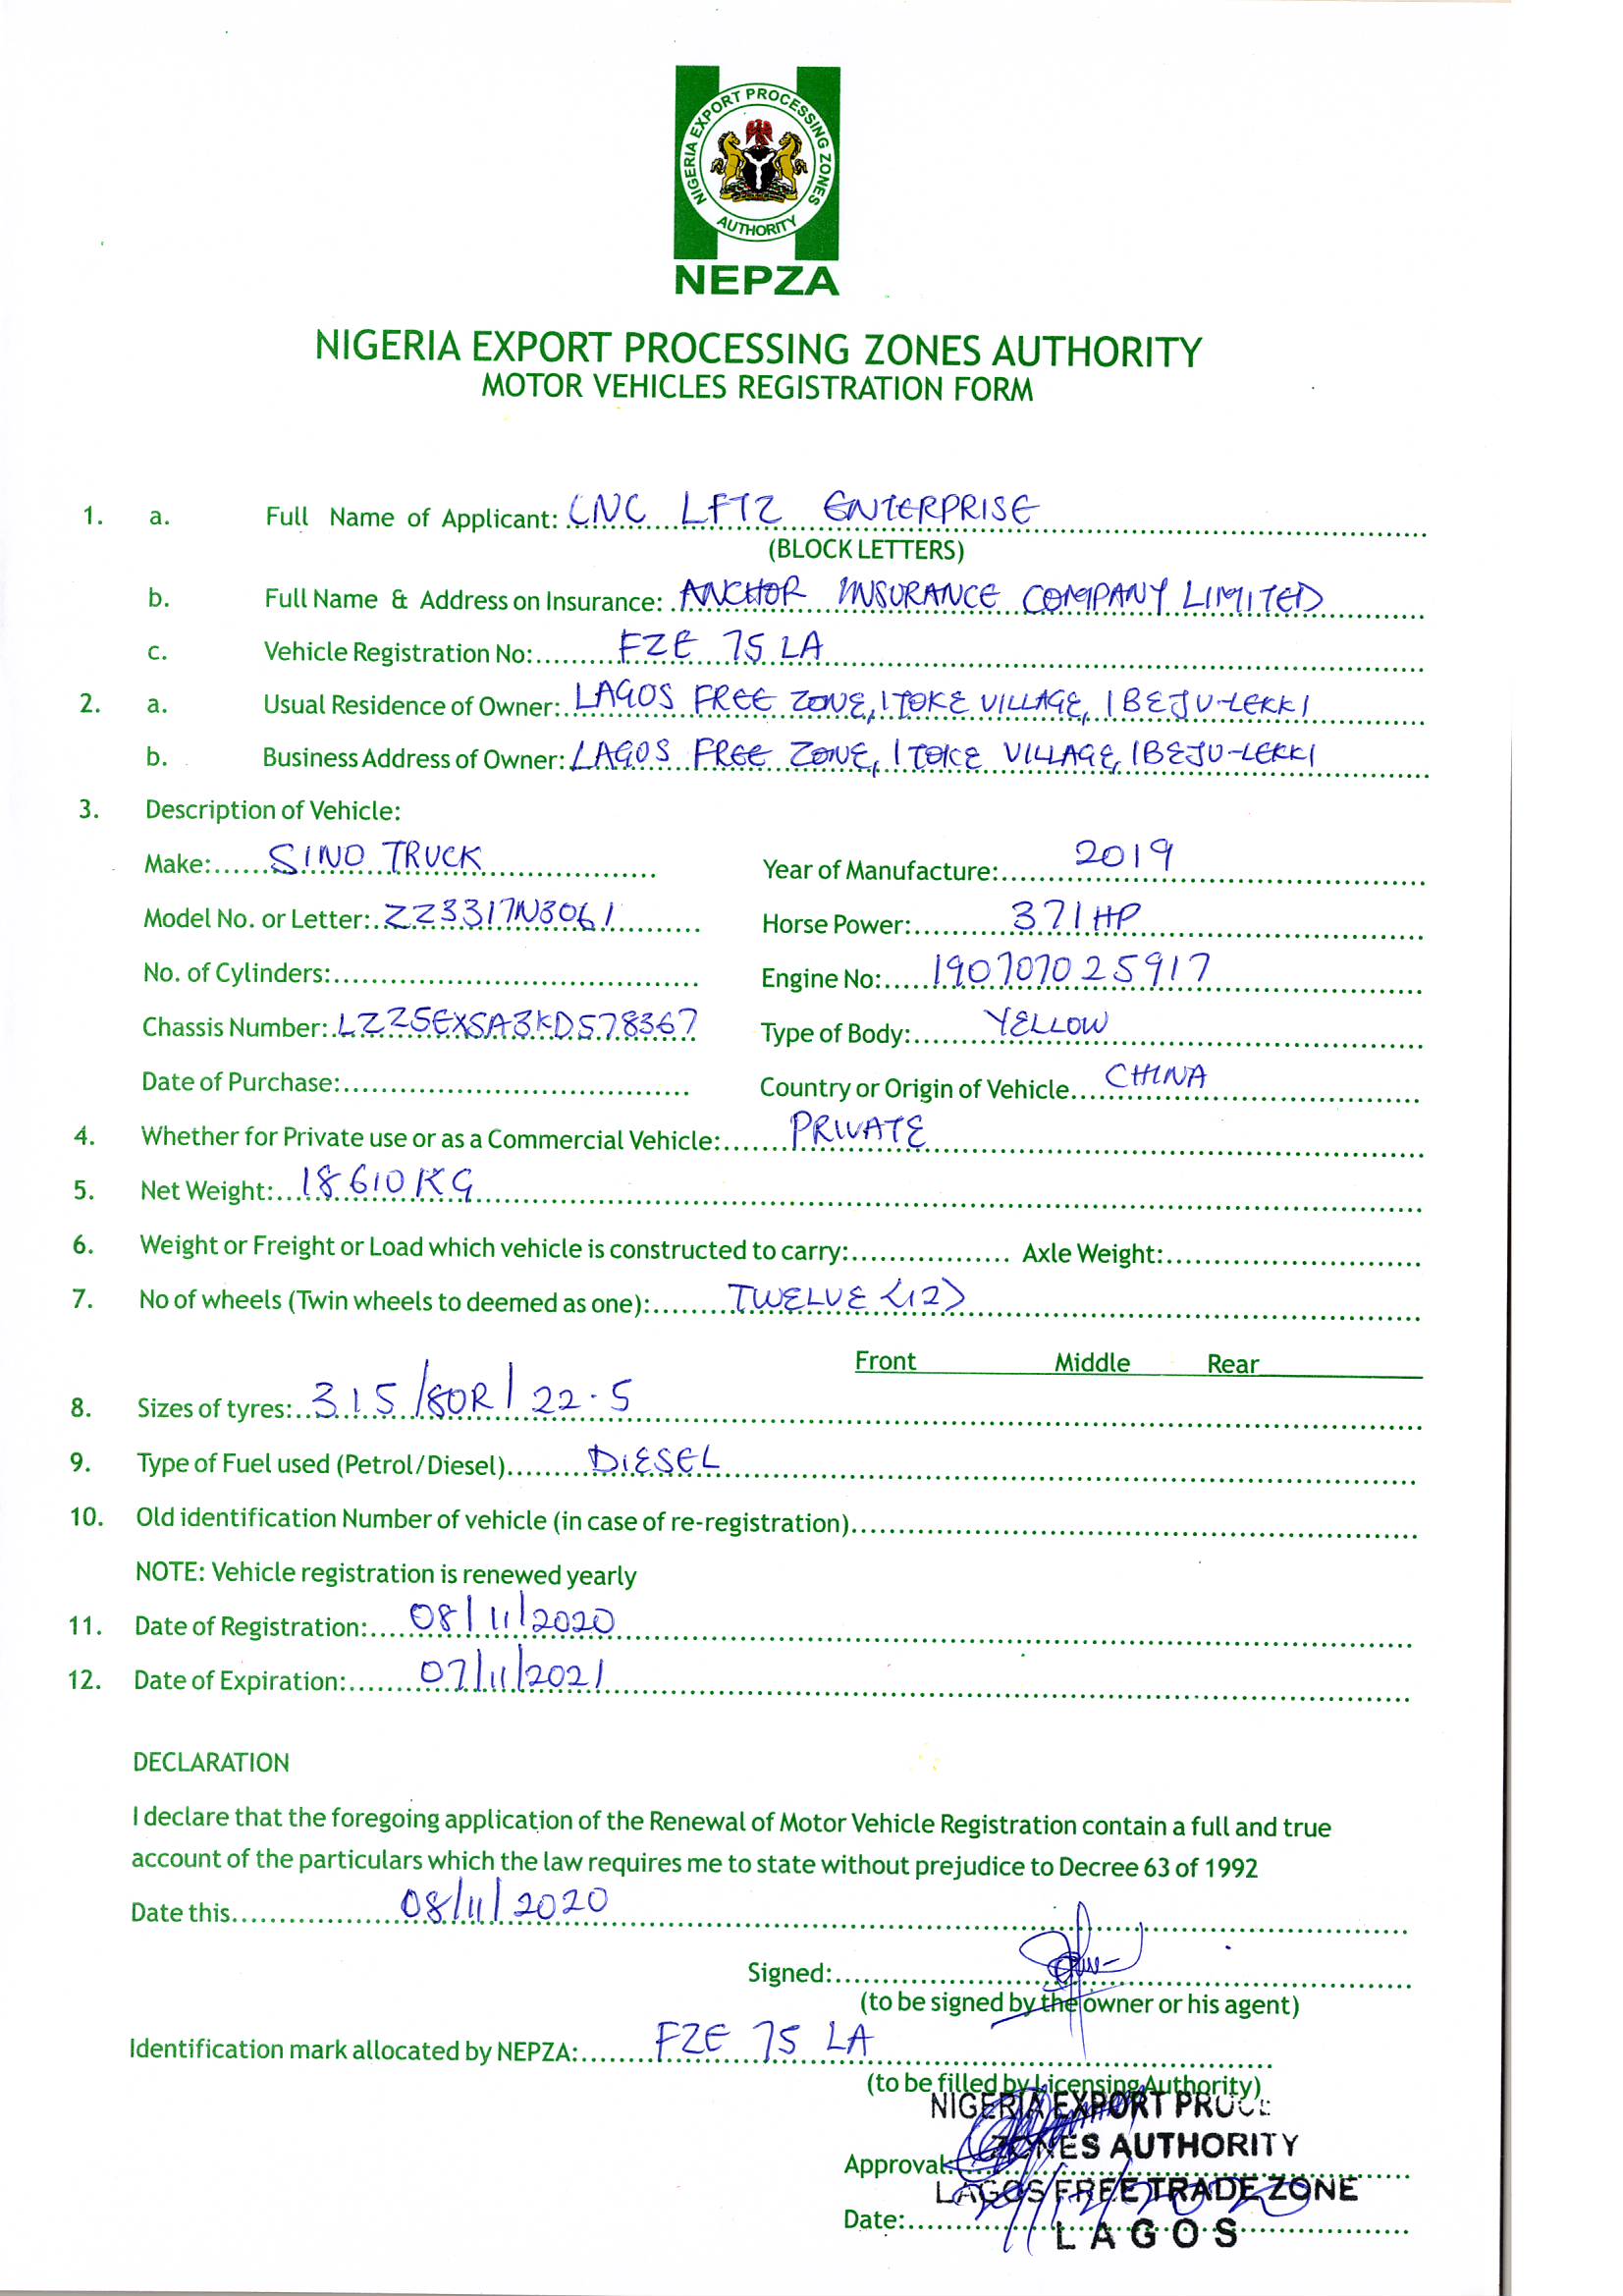 NIGERIA EXPORT PROCESSING ZONES
AUTHORITY
NEPZA
NIGERIA EXPORT PROCESSING ZONES AUTHORITY
MOTOR VEHICLES REGISTRATION FORM
1. a. Full Name of Applicant: CNC LFTZ ENTERPRISE
(BLOCK LETTERS)
b. Full Name & Address on Insurance: ANCHOR INSURANCE COMPANY LIMITED
c. Vehicle Registration No: FZE 75 LA
2. a. Usual Residence of Owner: LAGOS FREE ZONE, ITOKE VILLAGE, IBEJU-LEKKI
b. Business Address of Owner: LAGOS FREE ZONE, ITOKE VILLAGE, IBEJU-LEKKI
3. Description of Vehicle:
Make: SINO TRUCK Year of Manufacture: 2019
Model No. or Letter: ZZ3317N3061 Horse Power: 371HP
No. of Cylinders: Engine No: 190707025917
Chassis Number: LZZ5EXSA3KD578367 Type of Body: YELLOW
Date of Purchase: Country or Origin of Vehicle CHINA
4. Whether for Private use or as a Commercial Vehicle: PRIVATE
5. Net Weight: 18610KG
6. Weight or Freight or Load which vehicle is constructed to carry: Axle Weight:
7. No of wheels (Twin wheels to deemed as one): TWELVE <12>
Front Middle Rear
8. Sizes of tyres: 315/80R/22.5
9. Type of Fuel used (Petrol/Diesel) DIESEL
10. Old identification Number of vehicle (in case of re-registration)
NOTE: Vehicle registration is renewed yearly
11. Date of Registration: 08/11/2020
12. Date of Expiration: 07/11/2021
DECLARATION
I declare that the foregoing application of the Renewal of Motor Vehicle Registration contain a full and true
account of the particulars which the law requires me to state without prejudice to Decree 63 of 1992
Date this 08/11/2020
Signed:
(to be signed by the owner or his agent)
Identification mark allocated by NEPZA: FZE 75 LA
(to be filled by Licensing Authority)
NIGERIA EXPORT PROCE
ZONES AUTHORITY
Approval:
LAGOS FREE TRADE ZONE
Date:
LAGOS